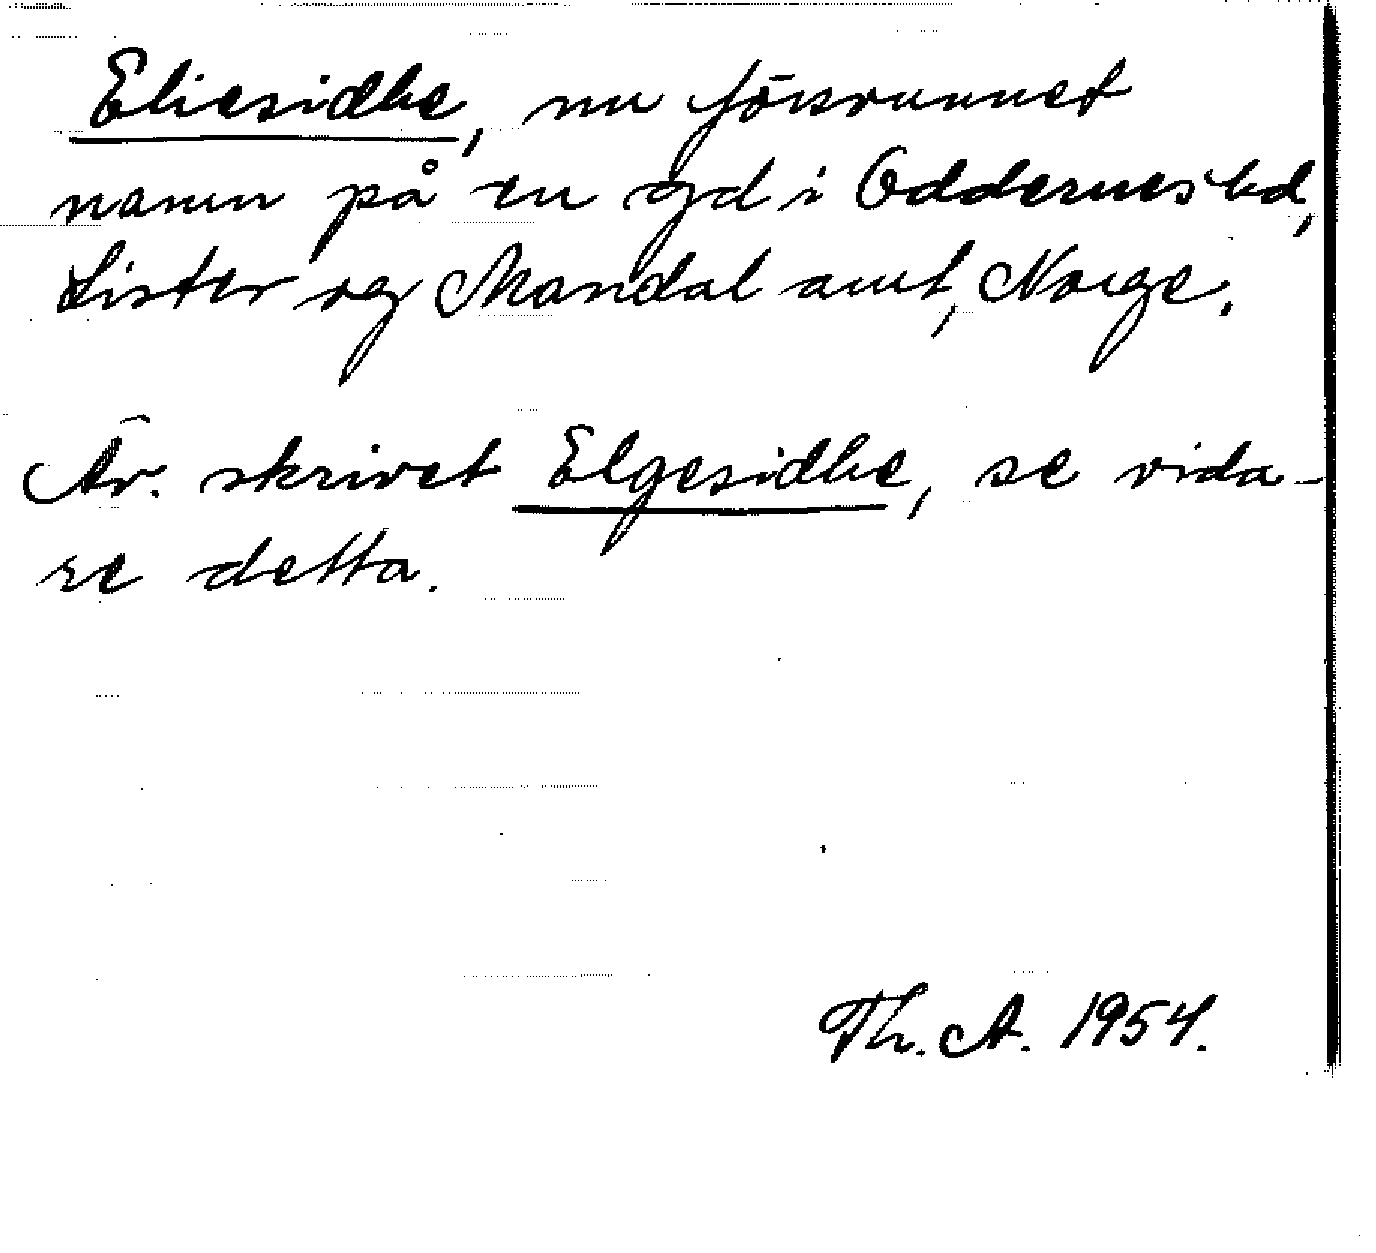 Eliesidhe, nu försvunnet
namn på en gd i Oddernes hd,
Lister og Mandal amt, Norge.
Äv. skrivet Elgesidhe, se vida-
re detta.
Th. A. 1954.